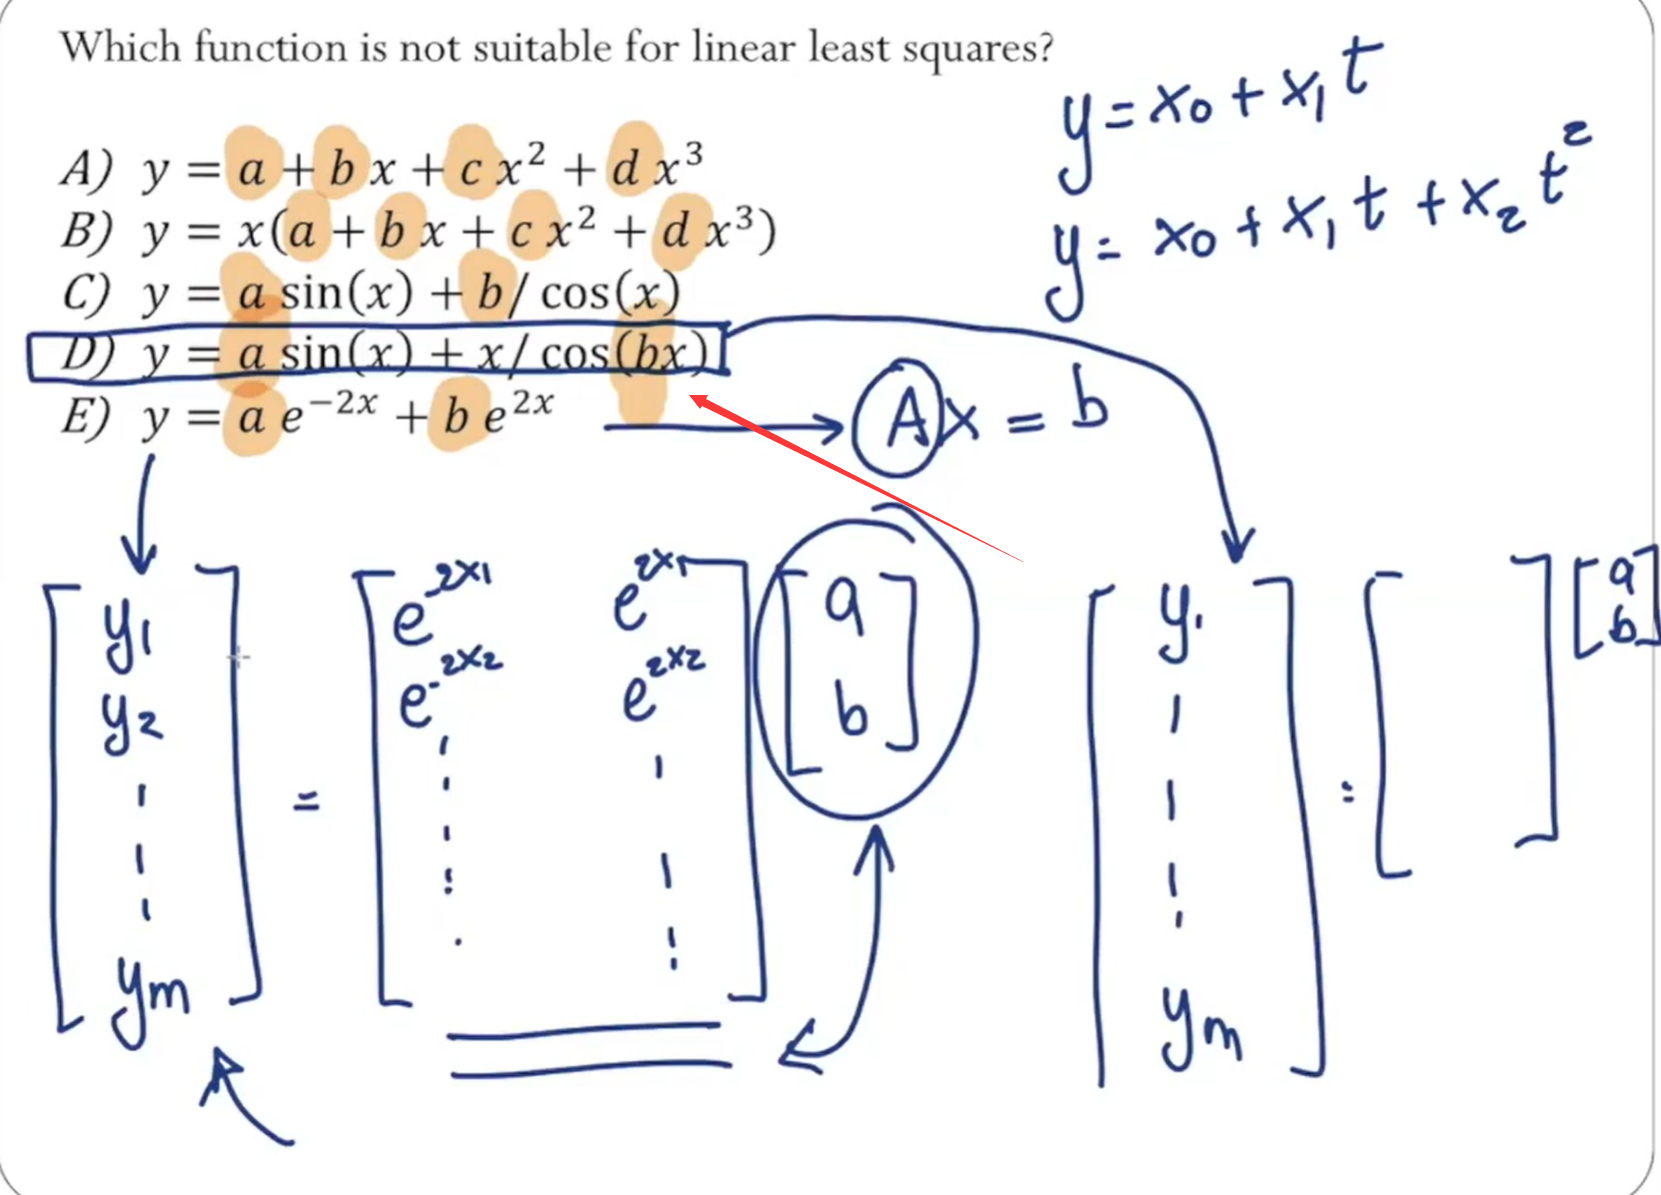 Which function is not suitable for linear least squares?
A) y = a + b x + c x² + d x³
B) y = x(a + b x + c x² + d x³)
C) y = a sin(x) + b/ cos(x)
D) y = a sin(x) + x/ cos(bx)
E) y = a e⁻²ˣ + b e²ˣ
y = x₀ + x₁ t
y = x₀ + x₁ t + x₂ t²
Ax = b
y₁
y₂
ym
=
e⁻²ˣ¹ e²ˣ¹
e⁻²ˣ² e²ˣ²
a
b
y₁
ym
=
a
b